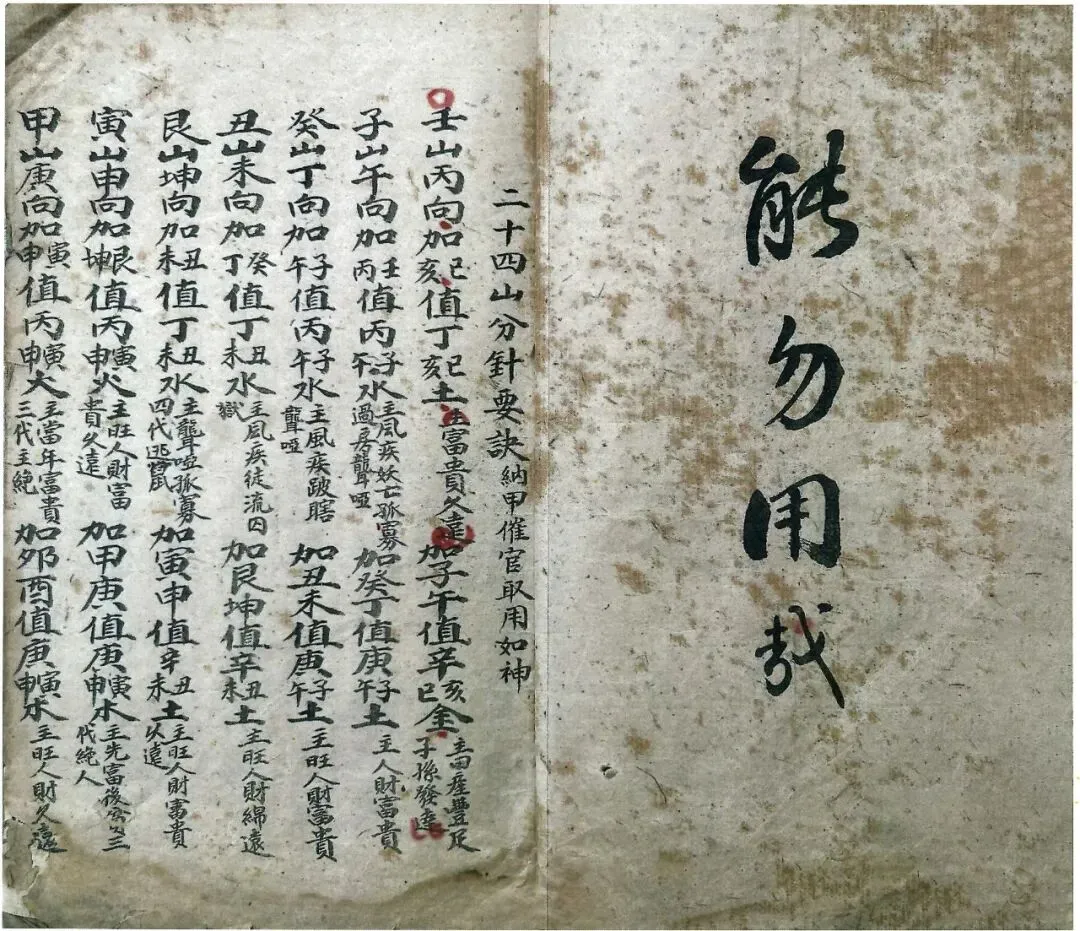 能勿用哉
二十四山分針要訣納甲催官取用如神
壬山丙向加巳亥值丁巳亥土主富貴久遠加子午值辛亥巳金主田產豐足子孫發達
子山午向加壬丙值丙子午水主風疾妖亡孤寡過房聾啞加癸丁值庚子午土主人財富貴
癸山丁向加子午值丙子午水主風疾跛瞎聾啞加丑未值庚子午土主旺人財富貴
丑山未向加癸丁值丁丑未水主風疾徒流囚獄加艮坤值辛丑未土主旺人財綿遠
艮山坤向加丑未值丁丑未水主聾啞孤寡四代逃鼠加寅申值辛丑未土主旺人財富貴久遠
寅山申向加艮坤值丙寅申火主旺人財富貴久遠加甲庚值庚寅申木主先富後三代絕人
甲山庚向加寅申值丙寅申火主當年富貴三代主絕加卯酉值庚寅申木主旺人財久遠